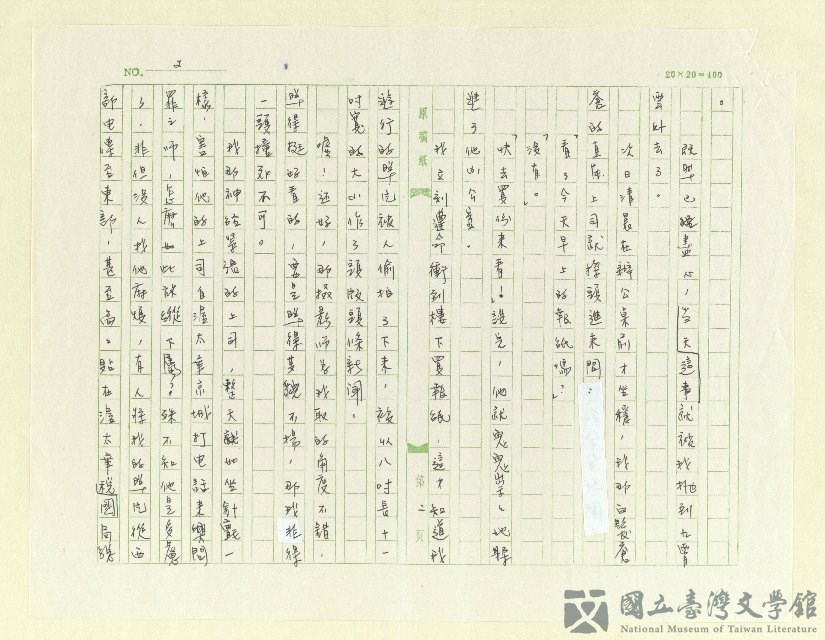 NO. 2
20×20=400
。
既然已經盡心，當天這事就被我拋到九霄
雲外去了。
次日清晨在辦公桌前才坐穩，我那白髮蒼
蒼的直屬上司就探頭進來問：
「看了今天早上的報紙嗎？」
「沒有。」
「快去買份來看！」說完，他就鬼鬼祟祟地躲
進了他的公室。
我立刻遵命衝到樓下買報紙，這才知道我
遊行的照片被人偷拍了下來，被以八吋長十一
吋寬的大小作了頭版頭條新聞。
噢！還好，那攝影師為我取的角度不錯，
照得挺好看的，要是照得其貌不揚，那我非得
一頭撞死不可。
我那神經緊張的上司，整天就地坐針氈一
樣，害怕他的上司自渥太華京城打電話來興問
罪之師，怎麼如此放縱下屬？殊不知他是多慮
了，非但沒人找他麻煩，有人將我的照片從西
部电傳至東部，甚至高高貼在渥太華稅國局總
原稿紙
第二頁
國立臺灣文學館
National Museum of Taiwan Literature